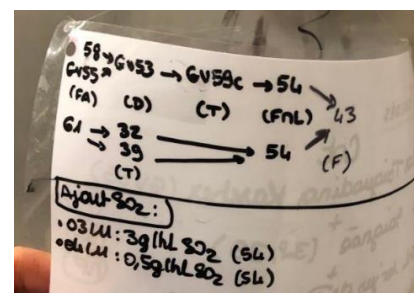 • 58 → GV53 → GV59c → 54 ↘
GV55 ↗
43
(FA) (D) (T) (FML)
G1 → 32 → 54 ↗
↘ 39 →
(T) (F)
Ajout SO2 :
• 03/11 : 3g/hL SO2 (54)
• 04/11 : 0,5g/hL SO2 (54)